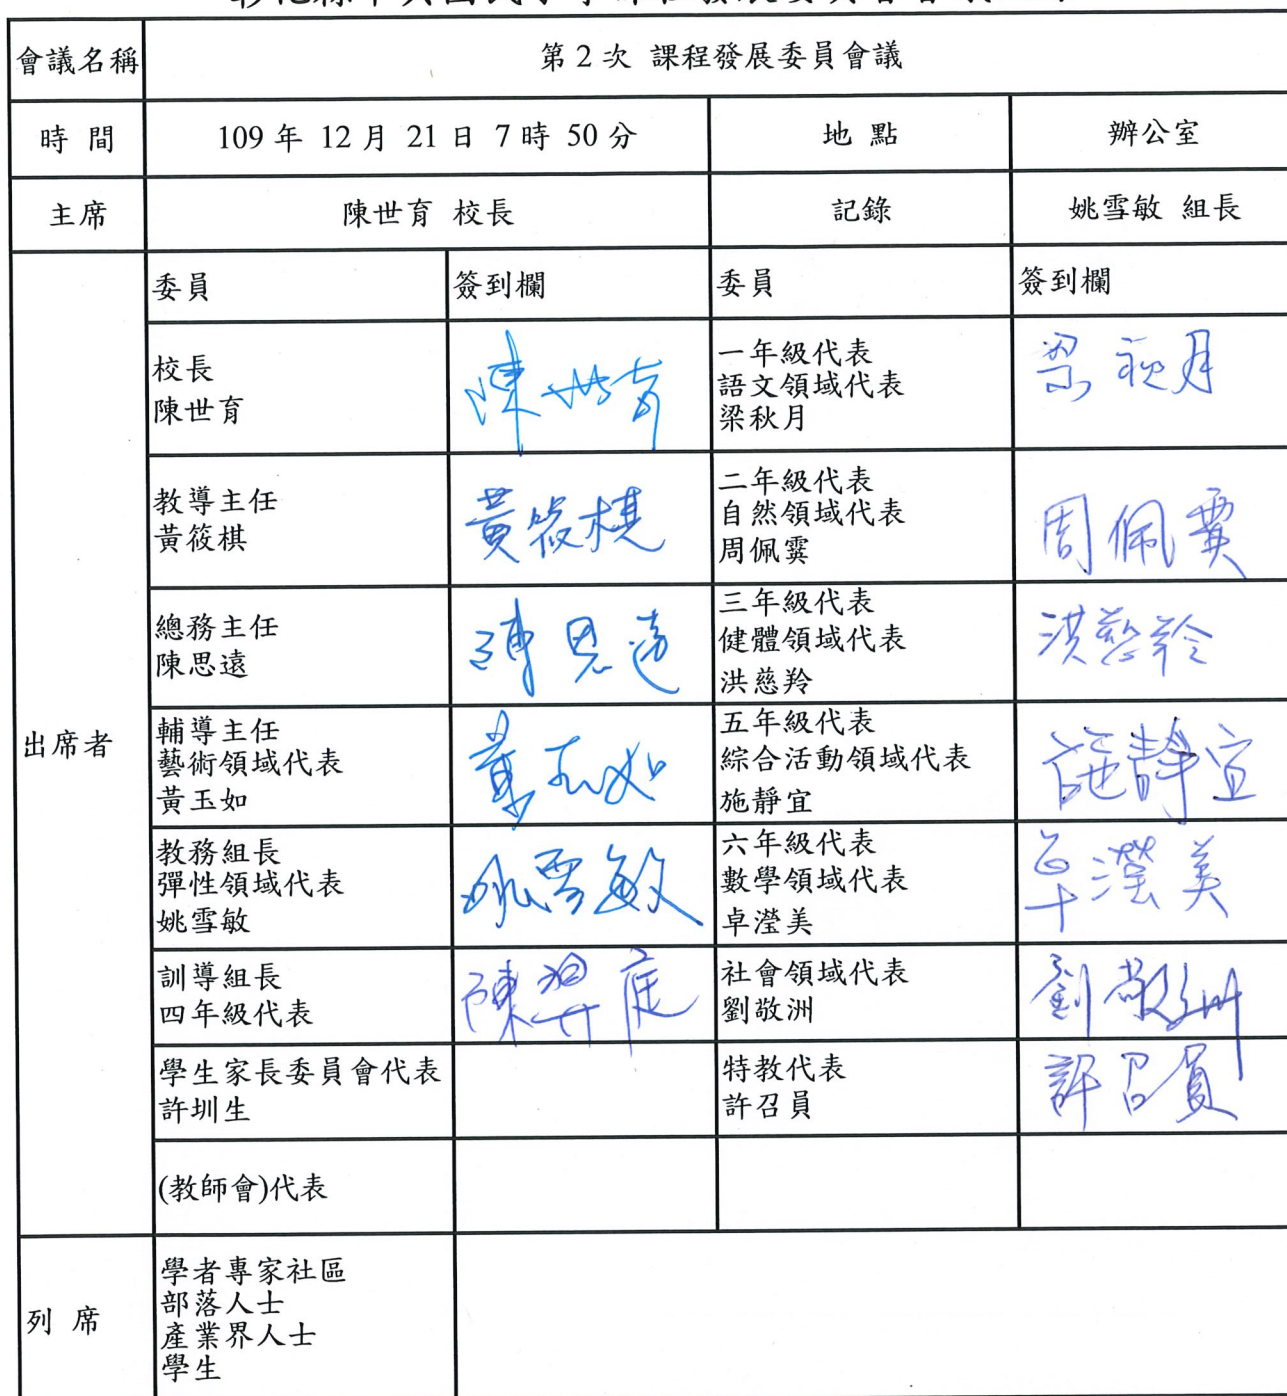 會議名稱
第2次 課程發展委員會議
時 間
109 年 12 月 21 日 7 時 50 分
地 點
辦公室
主席
陳世育 校長
記錄
姚雪敏 組長
出席者
委員
簽到欄
委員
簽到欄
校長
陳世育
陳世育
一年級代表
語文領域代表
梁秋月
梁秋月
教導主任
黃筱棋
黃筱棋
二年級代表
自然領域代表
周佩霙
周佩霙
總務主任
陳思遠
陳思遠
三年級代表
健體領域代表
洪慈羚
洪慈羚
輔導主任
藝術領域代表
黃玉如
黃玉如
五年級代表
綜合活動領域代表
施靜宜
施靜宜
教務組長
彈性領域代表
姚雪敏
姚雪敏
六年級代表
數學領域代表
卓瀅美
卓瀅美
訓導組長
四年級代表
陳羿庭
社會領域代表
劉敬洲
劉敬洲
學生家長委員會代表
許圳生
特教代表
許召員
許召員
(教師會)代表
列 席
學者專家社區
部落人士
產業界人士
學生